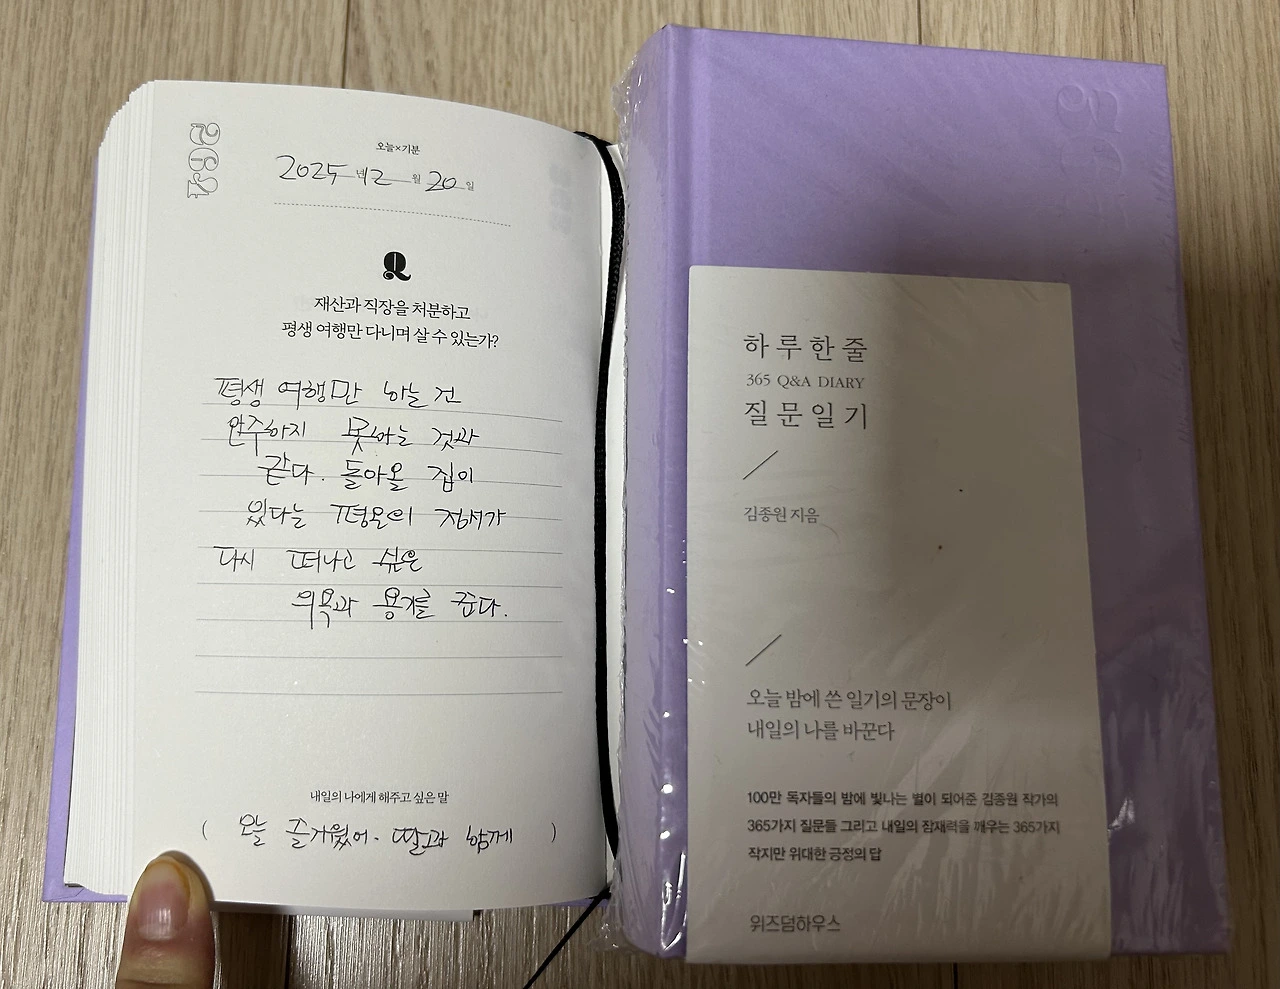 264
오늘×기분
2025년 2월 20일
Q
재산과 직장을 처분하고
평생 여행만 다니며 살 수 있는가?
평생 여행만 하는 건
안주하지 못하는 것과
같다. 돌아올 집이
있다는 평온의 정서가
다시 떠나고 싶은
의욕과 용기를 준다.
내일의 나에게 해주고 싶은 말
( 오늘 즐거웠어. 딸과 함께 )
하루 한 줄
365 Q&A DIARY
질문 일기
김종원 지음
오늘 밤에 쓴 일기의 문장이
내일의 나를 바꾼다
100만 독자들의 밤에 빛나는 별이 되어준 김종원 작가의
365가지 질문들 그리고 내일의 잠재력을 깨우는 365가지
작지만 위대한 긍정의 답
위즈덤하우스